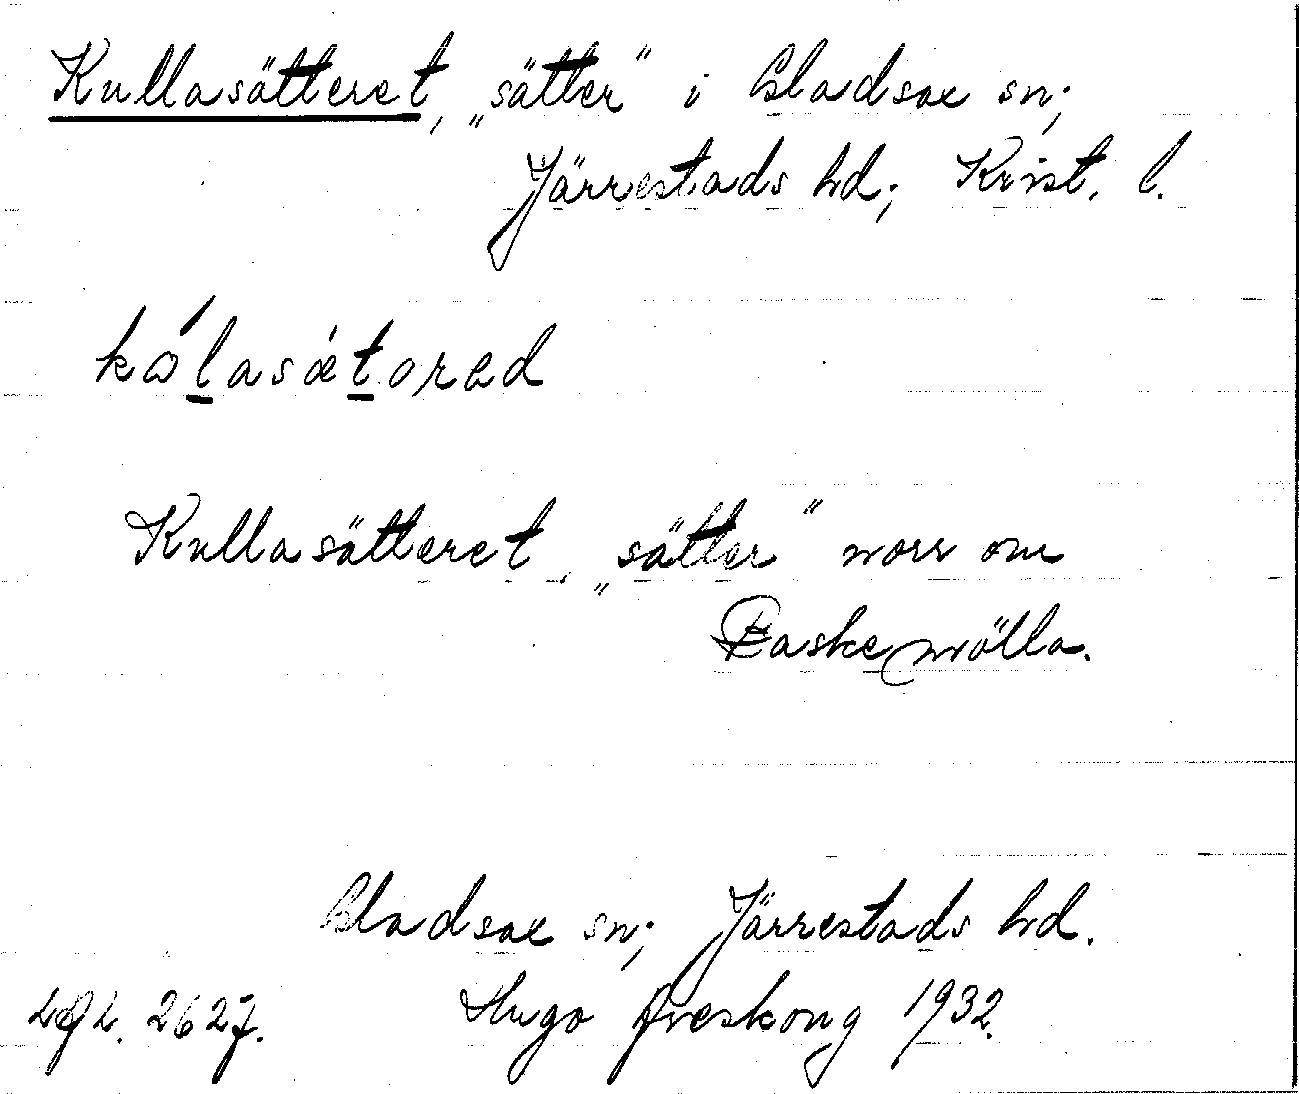 Kullasätteret, „sätter" i Gladsax sn;
Järrestads hd; Krist. l.
kɷ́lasǽtorəd
Kullasätteret, „sätter" norr om
Baskemölla.
Gladsax sn; Järrestads hd.
2627. Hugo Areskoug 1932.